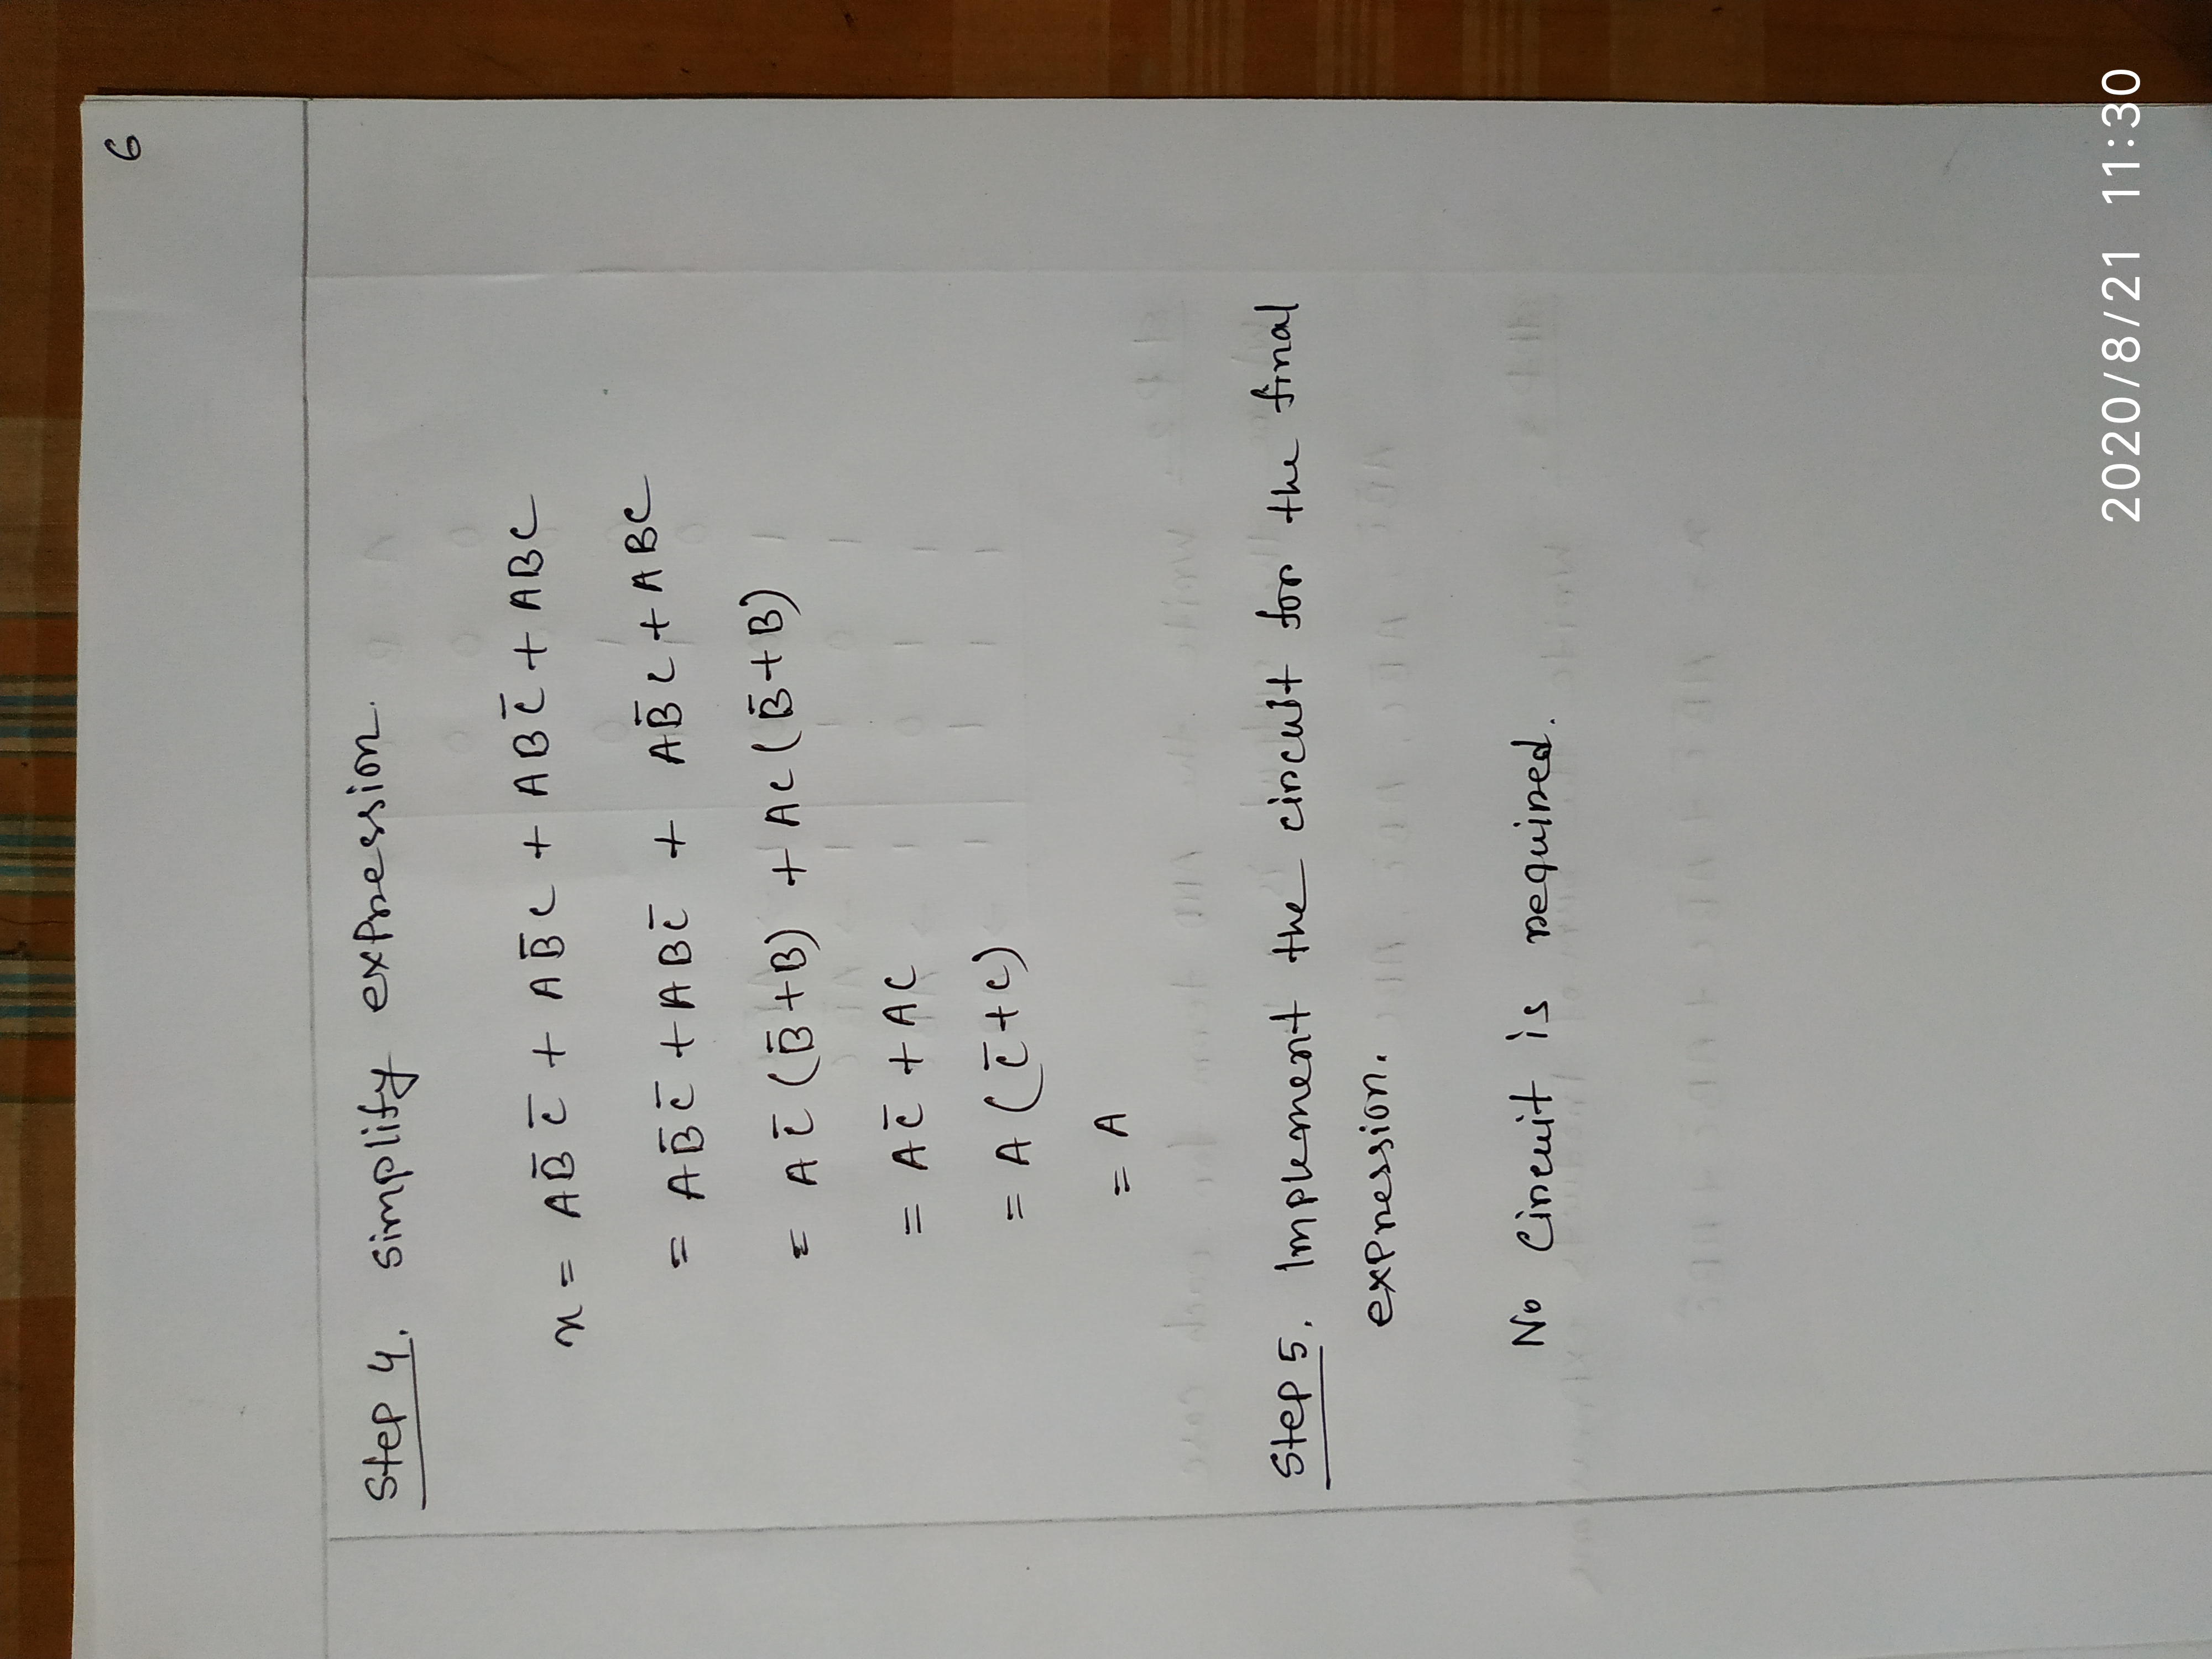 6
Step 4. simplify expression.
x = AB̅ C̅ + AB̅C + ABC̅ + ABC
= AB̅C̅ + ABC̅ + AB̅C + ABC
= AC̅ (B̅+B) + AC (B̅+B)
= AC̅ + AC
= A (C̅+C)
= A
Step 5. Implement the circuit for the final
expression.
No Circuit is required.
2020/8/21 11:30